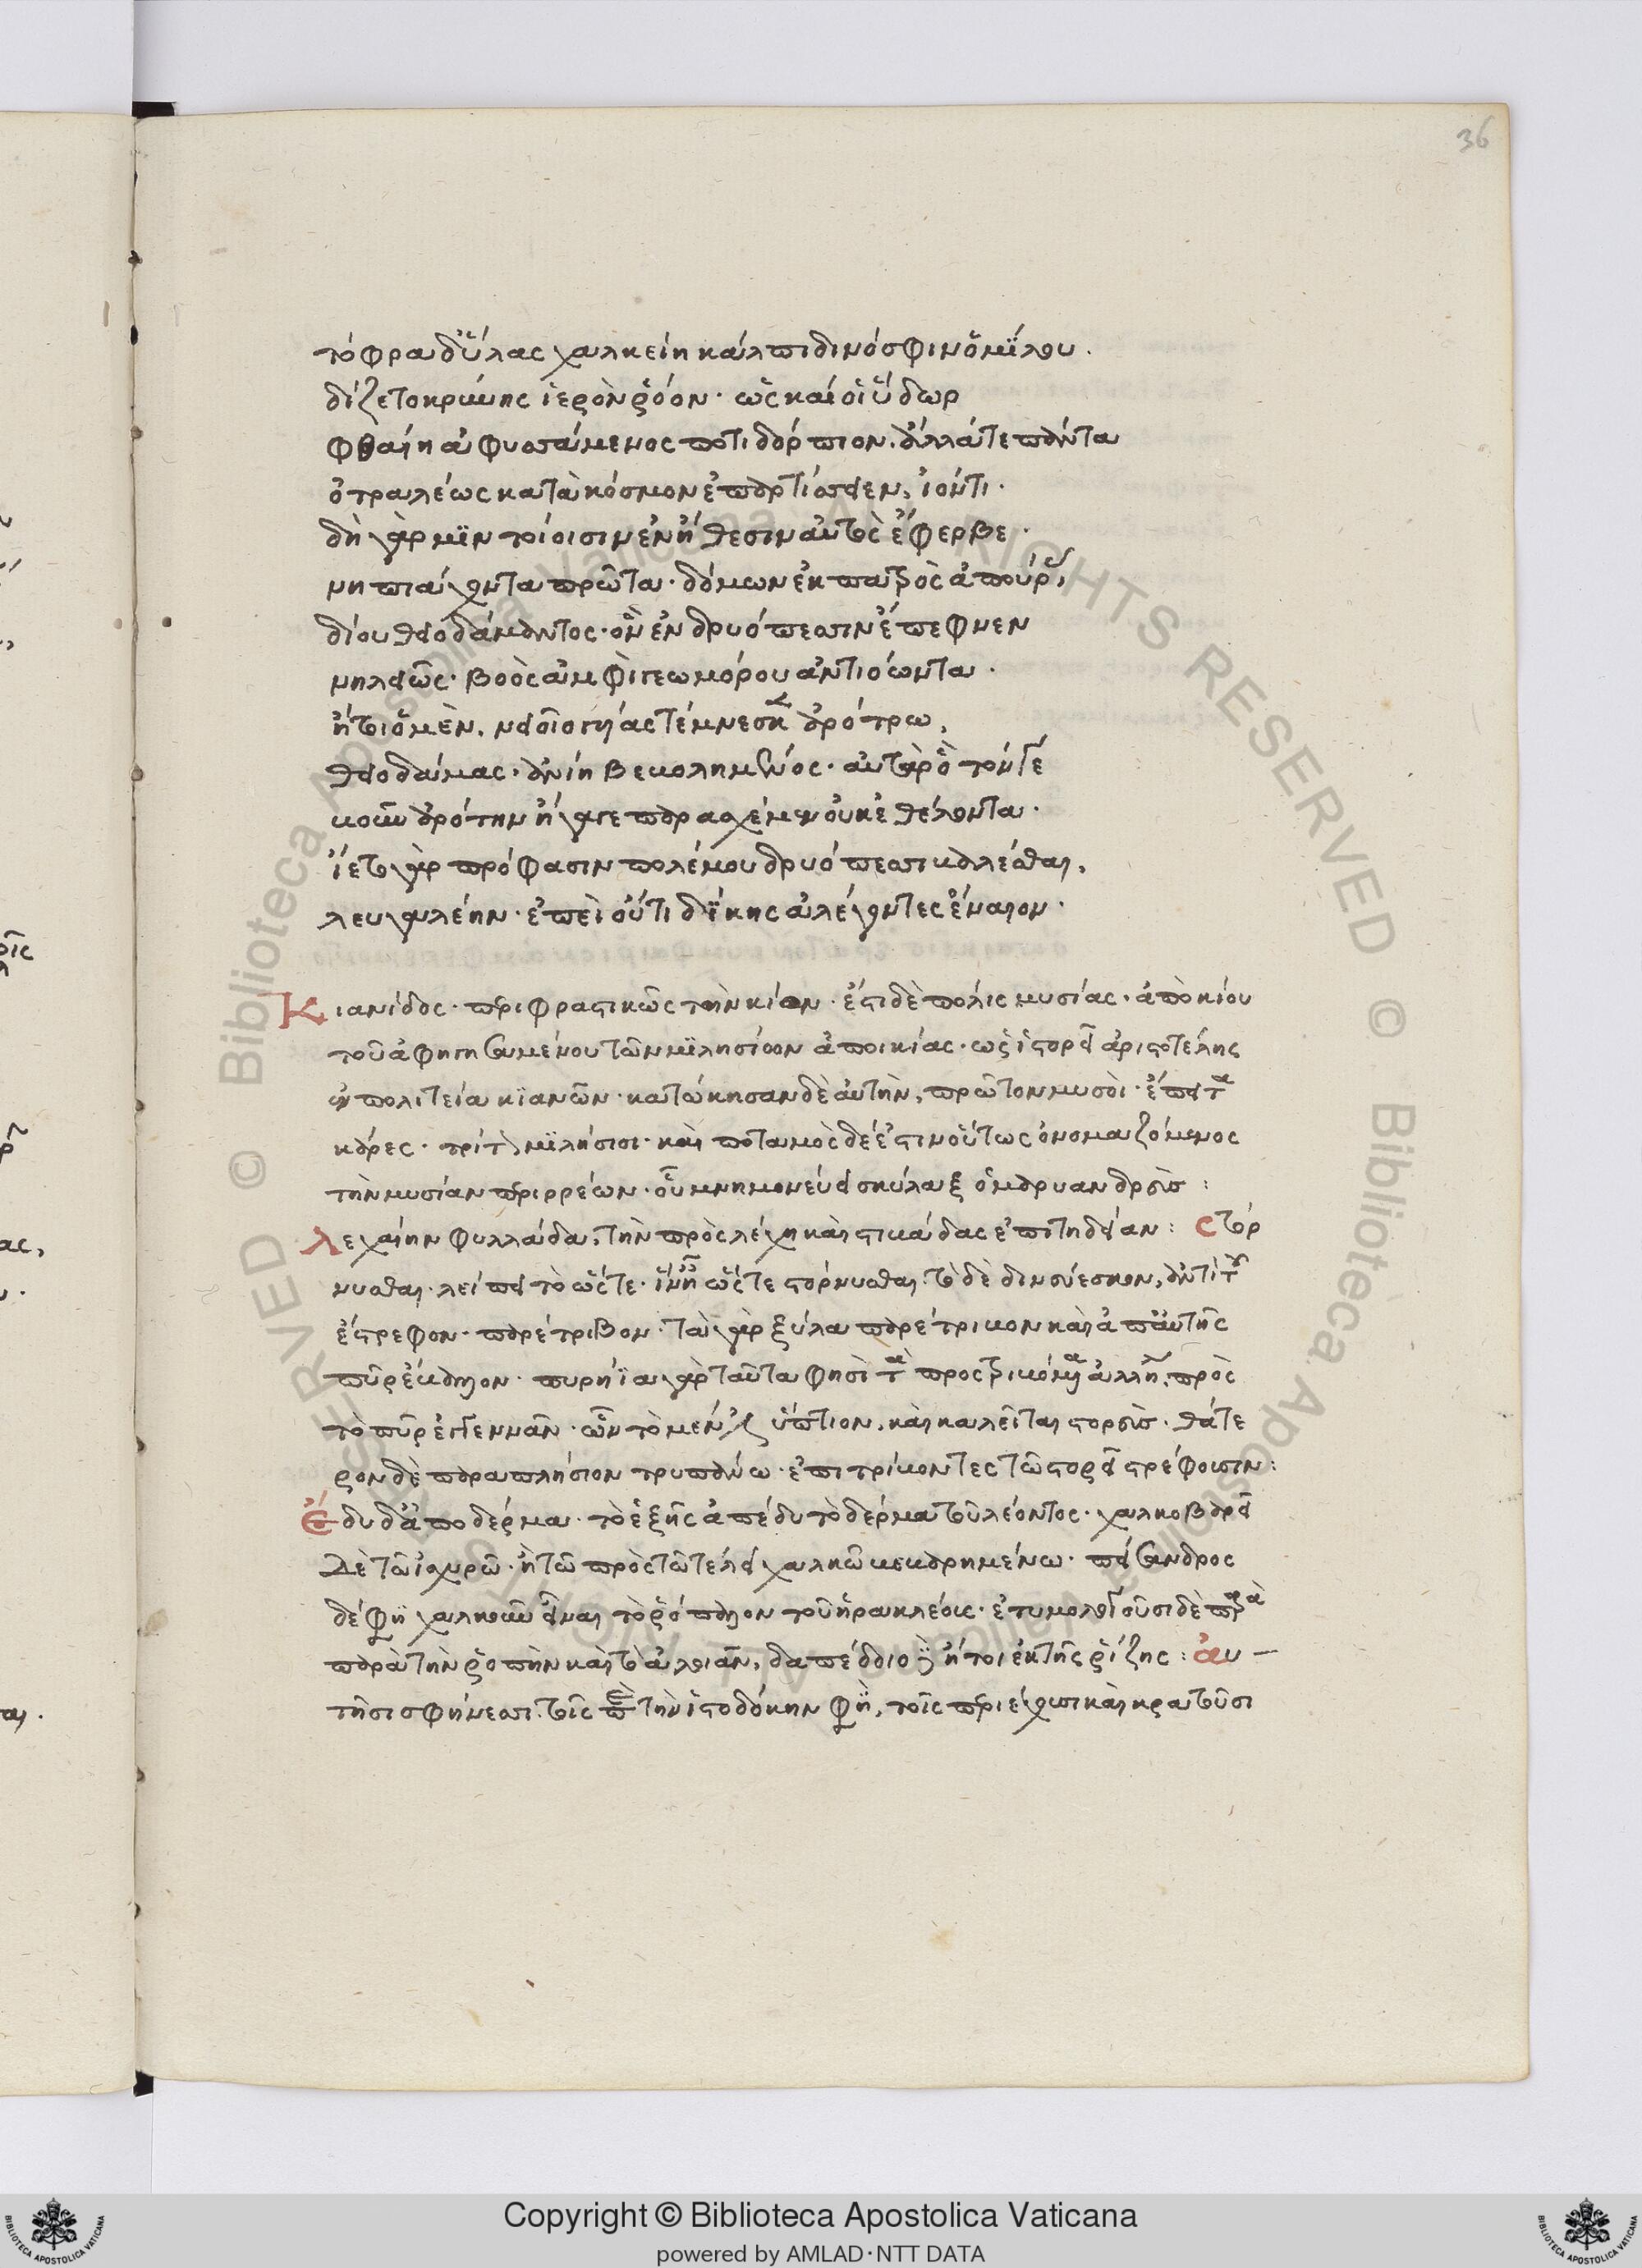 36
τόφρα δ' ὕλας χαλκείη κάλπιδι νόσφιν ὁμίλου.
δίζετο κρήνης ἱερὸν ῥόον. ὥς καί οἱ ὕδωρ
φθαίη ἀφυσσάμενος ποτιδόρπιον. ἄλλά τε πάντα
ὀτραλέως κατὰ κόσμον ἐπαρτίσσειεν, ἰόντι.
δὴ γάρ μιν τοίοισιν ἐν ἤθεσιν αὐτὸς ἔφερβε.
νηπίαχον τὰ πρῶτα. δόμων ἐκ πατρὸς ἀπούρας,
δίου θειοδάμαντος. ὃν ἐν δρυόπεσσιν ἔπεφνεν
νηλειῶς. βοὸς ἀμφὶ γεωμόρου ἀντιόωντα.
ἤτοι ὁ μὲν. νειοῖο γύας τέμνεσκεν ἀρότρω,
θειοδάμας. ἀνίη βεβολημένος. αὐτὰρ ὁ τόν γε
βοῦν ἀρότην ἤνωγε παρασχέμεν οὐκ ἐθέλοντα.
ἵετο γὰρ πρόφασιν πολέμου δρυόπεσσι βαλέσθαι,
λευγαλέην. ἐπεὶ οὔτι δίκης ἀλέγοντες ἔναιον.
Κιανίδος. περιφραστικῶς τὴν κίον. ἔστι δὲ πόλις μυσίας. ἀπὸ κίου
τοῦ ἀφηγησαμένου τῶν μιλησίων ἀποικίας. ὡς ἱστορεῖ ἀριστοτέλης
ἐν πολιτεία κιανῶν. κατώκησαν δὲ αὐτὴν, πρῶτον μυσοὶ. ἔπειτα
κάρες. τρίτον μιλήσιοι. καὶ ποταμὸς δέ ἐστιν οὕτως ὀνομαζόμενος
τὴν μυσίαν περιρρέων. οὗ μνημονεύει σκύλαξ ὁ καρυανδρεύς:
Λεχαίην φυλλάδα, τὴν πρὸς λέχη καὶ στιβάδας ἐπιτηδείαν: Στόρ
νυσθαι. λείπει τὸ ὥστε. ἵν' ἦ ὥστε στόρνυσθαι. τὸ δὲ δινεύεσκον, ἀντὶ τοῦ
ἔστρεφον. παρέτριβον. τὰ γὰρ ξύλα παρέτριβον καὶ ἀπ' αὐτῆς
πῦρ ἔβαλλον. πυρήϊα γὰρ ταῦτα φησὶ τὰ προστριβόμενα ἀλλήλοις πρὸς
τὸ πῦρ ἐγγεννᾶν. ὧν τὸ μέν ἐστιν ὕπτιον, καὶ καλεῖται στορεύς. θάτε
ρον δὲ παραπλήσιον τρυπάνω. ἐπιτρίβοντες τῶ στορεῖ στρέφουσιν:
Ἔδυ δ' ἀπο δέρμα. τὸ ἑξῆς ἀπέδυ τὸ δέρμα τοῦ λέοντος. χαλκοβαρεῖ
δὲ τῶ ἰσχυρῶ. ἢ τῶ πρὸς τῶ τέλει χαλκῶ βεβαρημένω. πείσανδρος
δέ φησι χαλκοῦν εἶναι τὸ ῥόπαλον τοῦ ἡρακλέους. ἐτυμολογοῦσι δὲ παρὰ
παρὰ τὴν ῥοπὴν καὶ τὸ ἀλοιᾶν. δαπέδοιο γὰρ ἤτοι ἐκ τῆς ῥίζης: αὐ-
τῆσι σφήνεσσι. τοῖς περὶ τὴν ἱστοδόκην φησὶ, τοῖς περιέχουσι καὶ κρατοῦσι
Copyright © Biblioteca Apostolica Vaticana
powered by AMLAD·NTT DATA